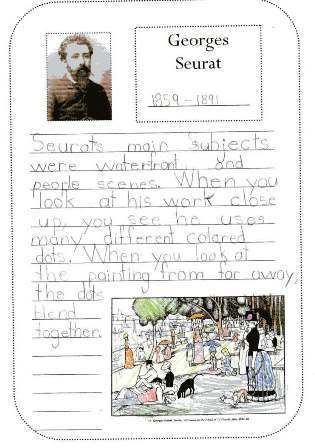 Georges
Seurat
1859-1891
Seurats main subjects
were waterfront and
people scenes. When you
look at his work close
up, you see he uses
many different colored
dots. When you look at
the painting from far away,
the dots
blend
together.